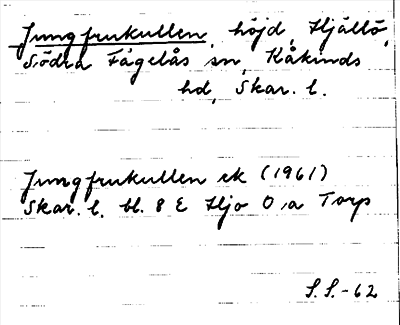 Jungfrukullen, höjd, Hjällö,
Södra Fågelås sn, Kåkinds
hd, Skar. l.
Jungfrukullen ek (1961)
Skar. l. bl. 8 E Hjo 0, a Torp
S.S.-62